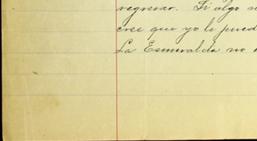 regreso. Si algo
cree que yo le pued
La Esmeralda no